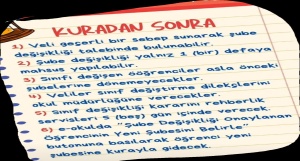 KURADAN SONRA
1) Veli geçerli bir sebep sunarak şube
değişikliği talebinde bulunabilir.
2) Şube değişikliği yalnız 1 (bir) defaya
mahsus yapılabilir.
3) Sınıfı değişen öğrenciler asla önceki
şubelerine dönemeyecekler.
4) Veliler sınıf değiştirme dilekçelerini
okul müdürlüğüne verecekler.
5) Sınıf değişikliği kararını rehberlik
servisleri 5 (beş) gün içinde verecek.
6) e-okulda "Şube Değişikliği Onaylanan
Öğrencinin Yeni Şubesini Belirle"
butonuna basılarak öğrenci yeni
şubesine kurayla gidecek.